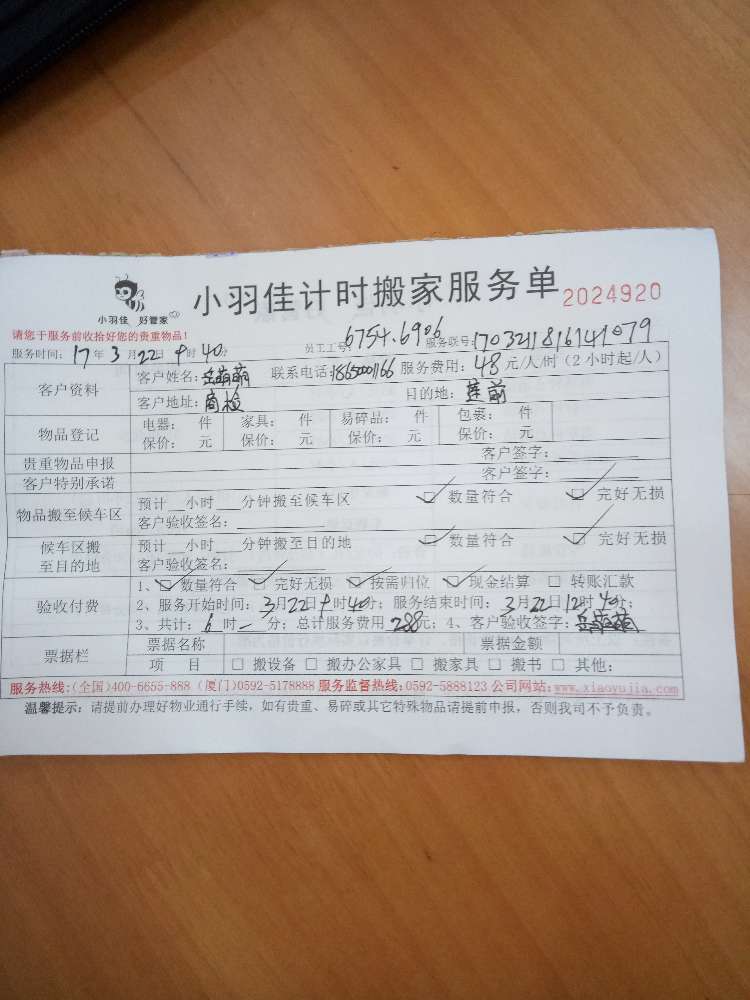 小羽佳 好管家
小羽佳计时搬家服务单 2024920
请您于服务前收拾好您的贵重物品！
员工工号: 6754.6906 服务联号: 170321816141079
服务时间: 17年3月22日9时40分
客户资料 客户姓名: 岳萌萌 联系电话: 服务费用: 48元/人/时(2小时起/人)
客户地址: 商检 目的地: 莲前
物品登记 电器: 件 家具: 件 易碎品: 件 包裹: 件
保价: 元 保价: 元 保价: 元 保价: 元
贵重物品申报 客户签字:
客户特别承诺 客户签字:
物品搬至候车区 预计__小时___分钟搬至候车区 ☑ 数量符合 ☑ 完好无损
客户验收签名:
候车区搬至目的地 预计__小时___分钟搬至目的地 ☑ 数量符合 ☑ 完好无损
客户验收签名:
验收付费 1、☑ 数量符合 ☑ 完好无损 ☑ 按需归位 ☑ 现金结算 □ 转账汇款
2、服务开始时间: 3月22日9时40分; 服务结束时间: 3月22日12时40分;
3、共计: 6时一分; 总计服务费用288元; 4、客户验收签字: 岳萌萌
票据栏 票据名称 票据金额
项 目 □ 搬设备 □ 搬办公家具 □ 搬家具 □ 搬书 □ 其他:
服务热线:(全国)400-6655-888 (厦门)0592-5178888 服务监督热线:0592-5888123 公司网站:www.xiaoyujia.com
温馨提示: 请提前办理好物业通行手续，如有贵重、易碎或其它特殊物品请提前申报，否则我司不予负责。